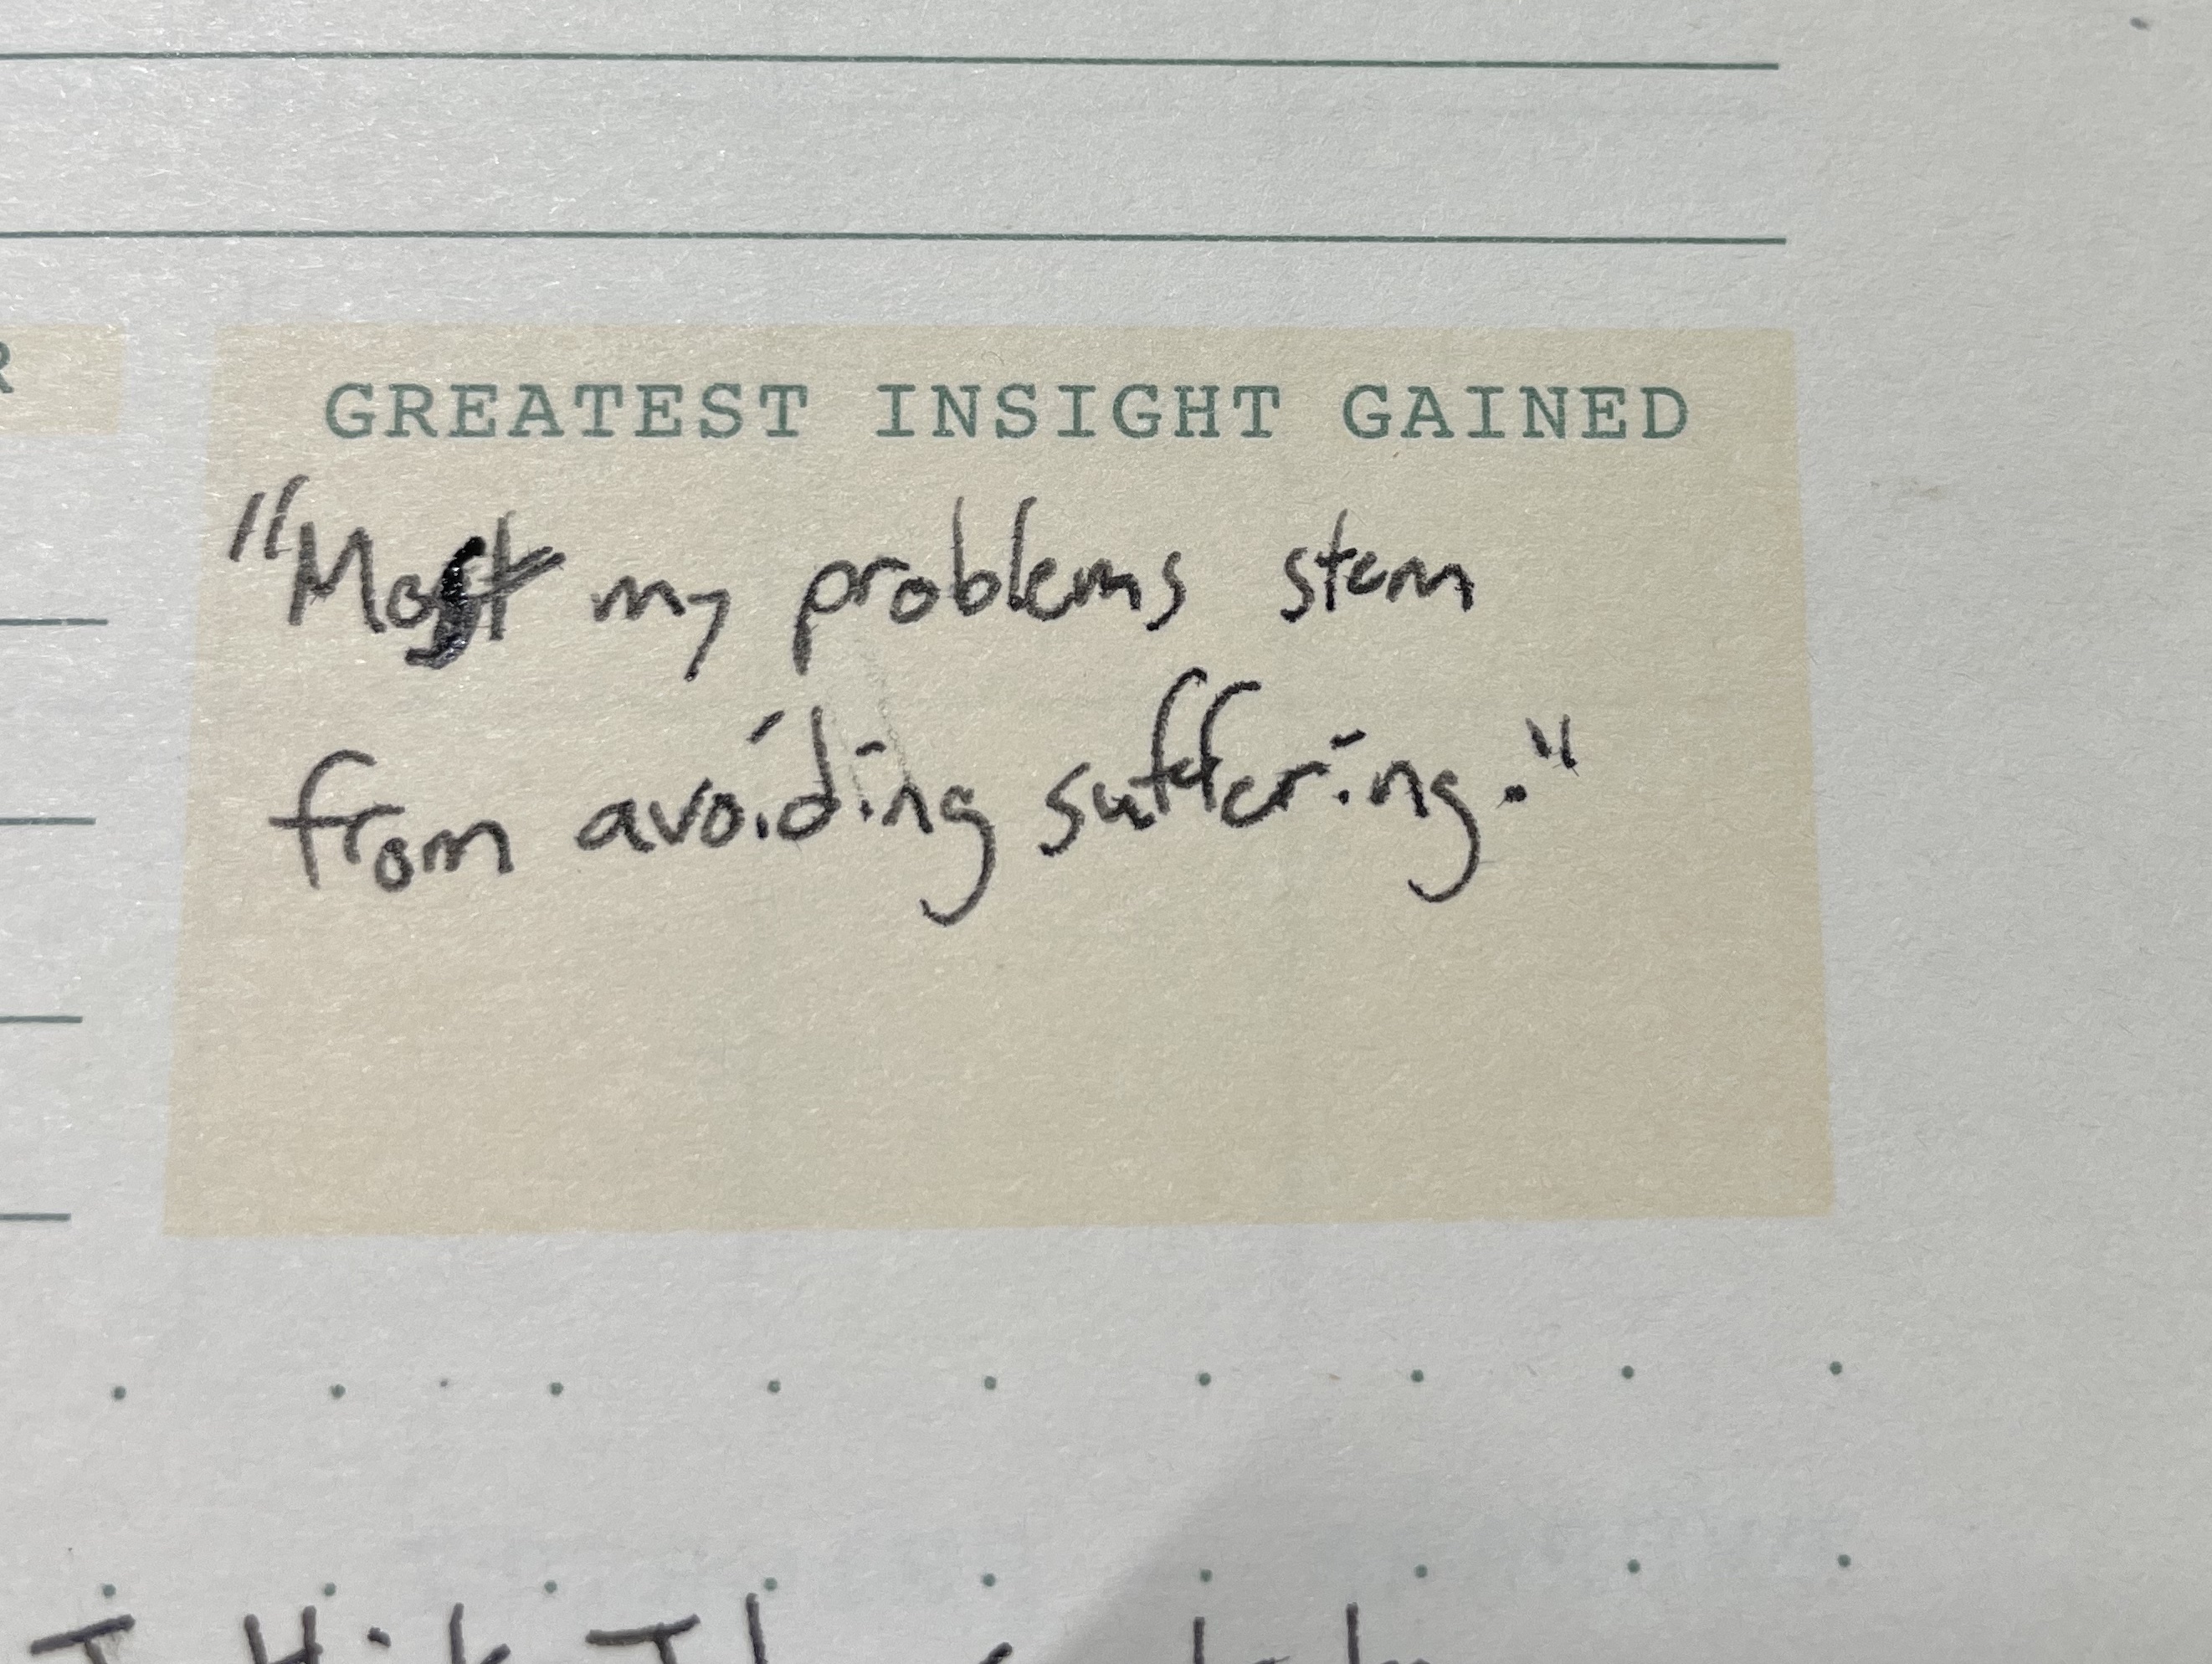 R
GREATEST INSIGHT GAINED
"Most my problems stem
from avoiding suffering."